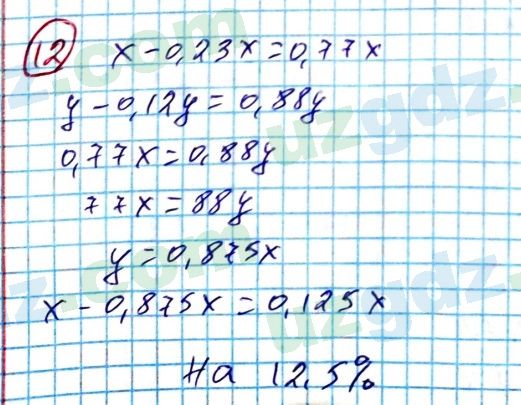 12 x - 0,23x = 0,77x
y - 0,12y = 0,88y
0,77x = 0,88y
77x = 88y
y = 0,875x
x - 0,875x = 0,125x
На 12,5%